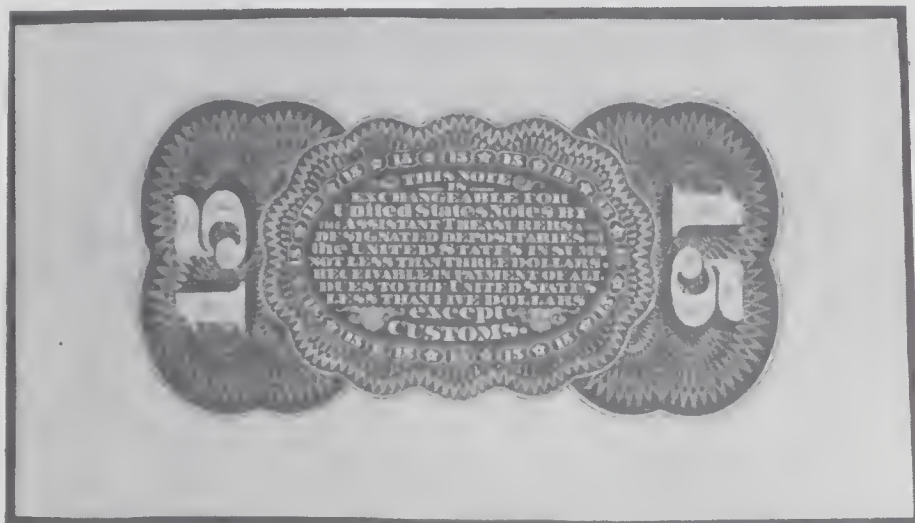 15
15 15 15 15 15 15
THIS NOTE
IS
EXCHANGEABLE FOR
United States Notes BY
THE ASSISTANT TREASURERS &
DESIGNATED DEPOSITARIES
the UNITED STATES IN SUMS
NOT LESS THAN THREE DOLLARS
RECEIVABLE IN PAYMENT OF ALL
DUES TO THE UNITED STATES
LESS THAN FIVE DOLLARS
except
CUSTOMS.
15 15 15 15 15
15